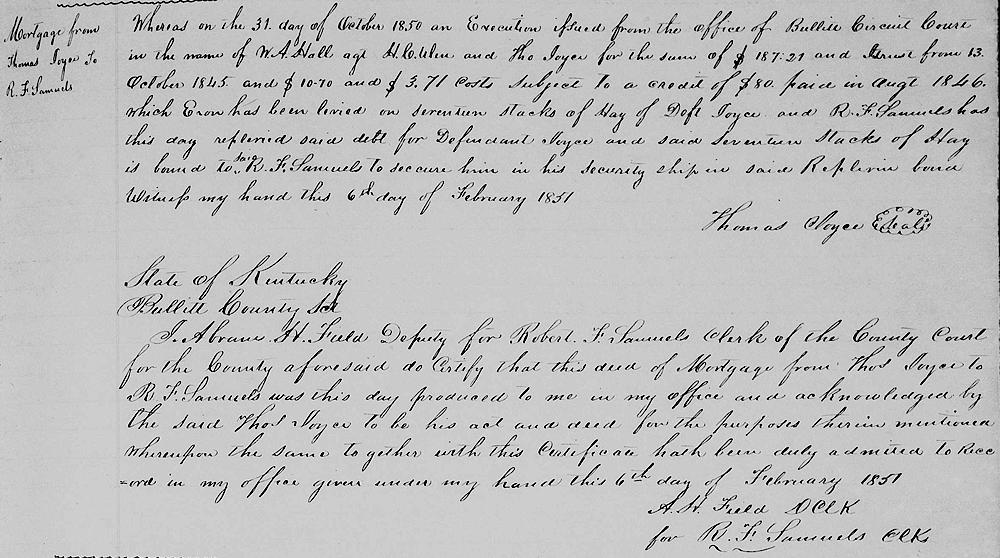 Mortgage from
Thomas Joyce To
R. F. Samuels
Whereas on the 31. day of October 1850 an Execution issued from the office of Bullitt Circuit Court
in the name of W. A. Hall agt H. C. Wen and Tho Joyce for the sum of $ 187.21 and Intrust from 13.
October 1845. and $ 10.70 and $ 3.71 Costs subject to a credit of $80. paid in Augt 1846.
which Exon has been levied on seventeen stacks of Hay of Deft Joyce and R. F. Samuels has
this day replevied said debt for Defendant Joyce and said seventeen Stacks of Hay
is bound to said R. F. Samuels to seccure him in his security ship in said Replevin bond
Witness my hand this 6th day of February 1851
Thomas Joyce Seal
State of Kentucky
Bullitt County Sct
I. Abram H. Field Deputy for Robert. F. Samuels Clerk of the County Court
for the County aforesaid do Certify that this deed of Mortgage from Thos Joyce to
R. F. Samuels was this day produced to me in my office and acknowledged by
the said Thos Joyce to be his act and deed for the purposes therein mentioned
whereupon the same to gether with this Certificate hath been duly admited to Recc
=ord in my office given under my hand this 6th day of February 1851
A. H. Field DClk
for R. F. Samuels Clk